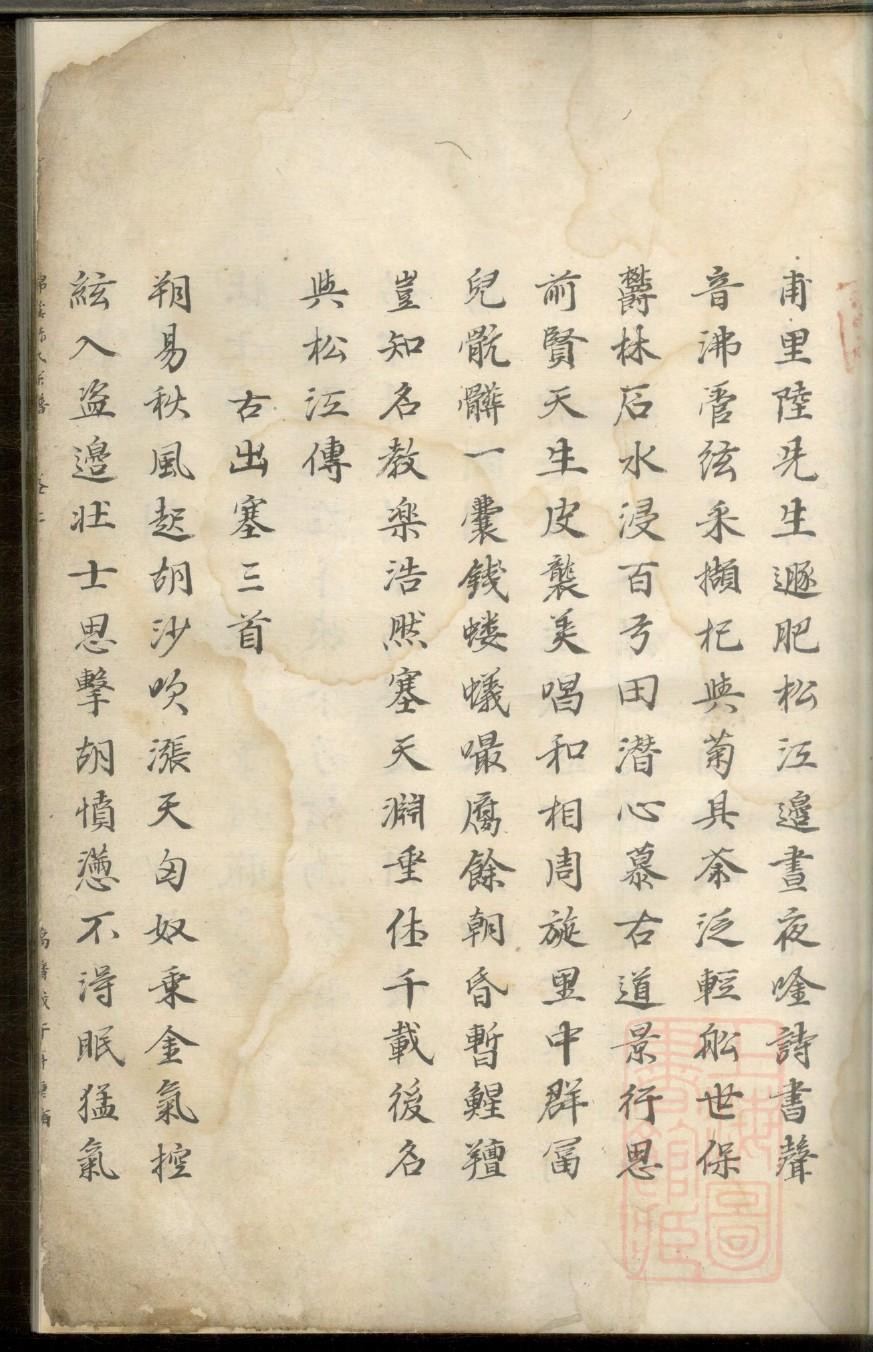 甫里陸先生遯肥松江邊晝夜唫詩書聲
音沸管絃采擷杞與菊具茶泛輕舩世保
欝林石水浸百弓田潜心慕古道景行思
前賢天生皮襲美唱和相周旋里中群冨
兒骯髒一囊錢蝼蟻嘬腐餘朝昏暫鯹羶
豈知名教楽浩然塞天淵垂休千載後名
與松江傳
古出塞三首
朔易秋風起胡沙吹漲天匈奴乗金氣控
絃入盗邊壯士思擊胡憤懣不淂眠猛氣